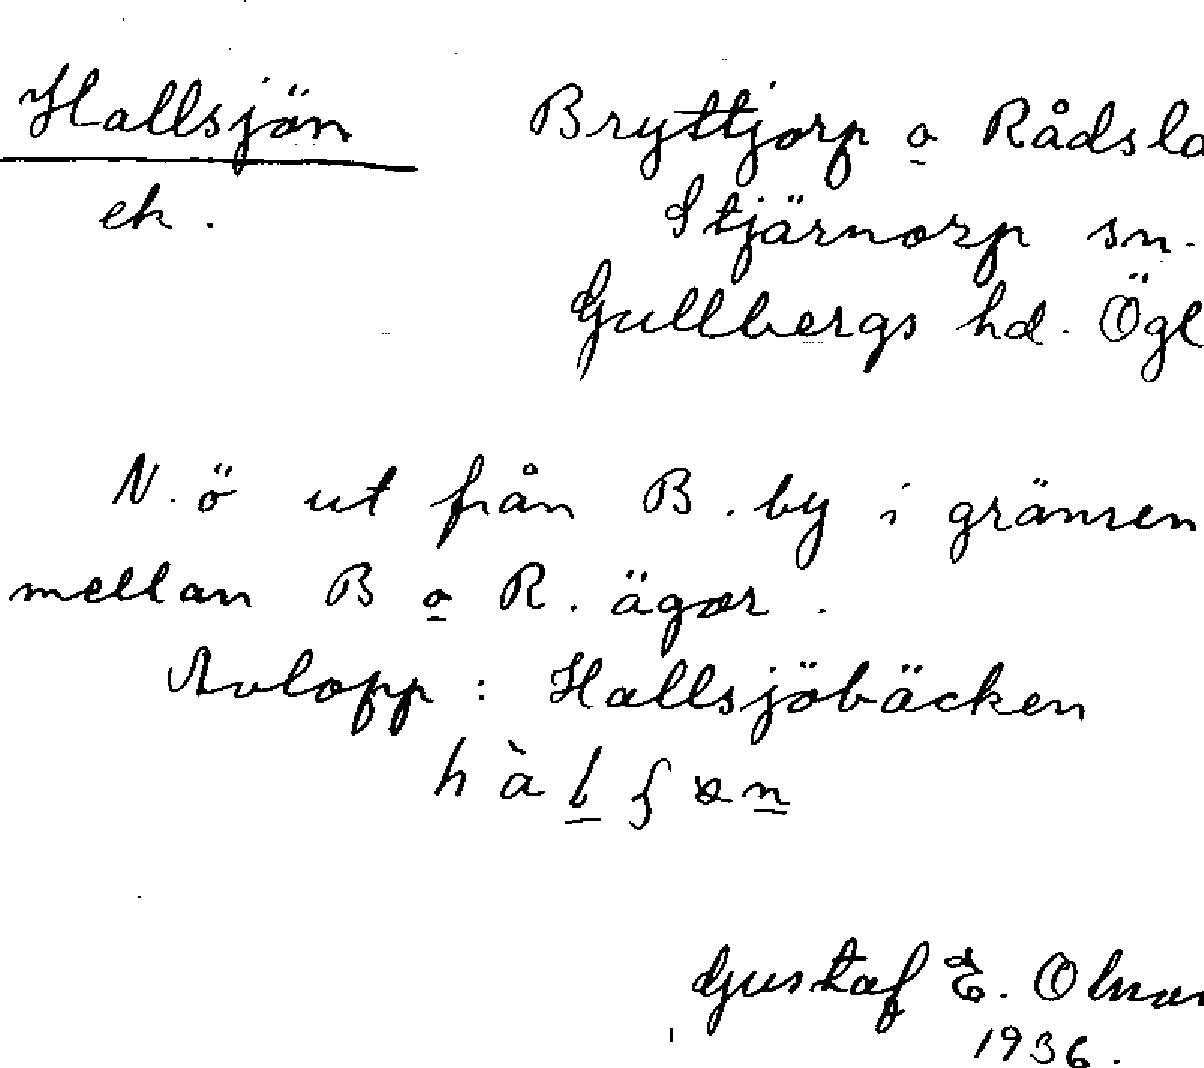 Hallsjön Bryttjorp o Rådsla
ek. Stjärnorp sn.
Gullbergs hd. Ögl
N. ö ut från B. by i gränsen
mellan B o R. ägor.
Avlopp: Hallsjöbäcken
Gustaf E.
1936.